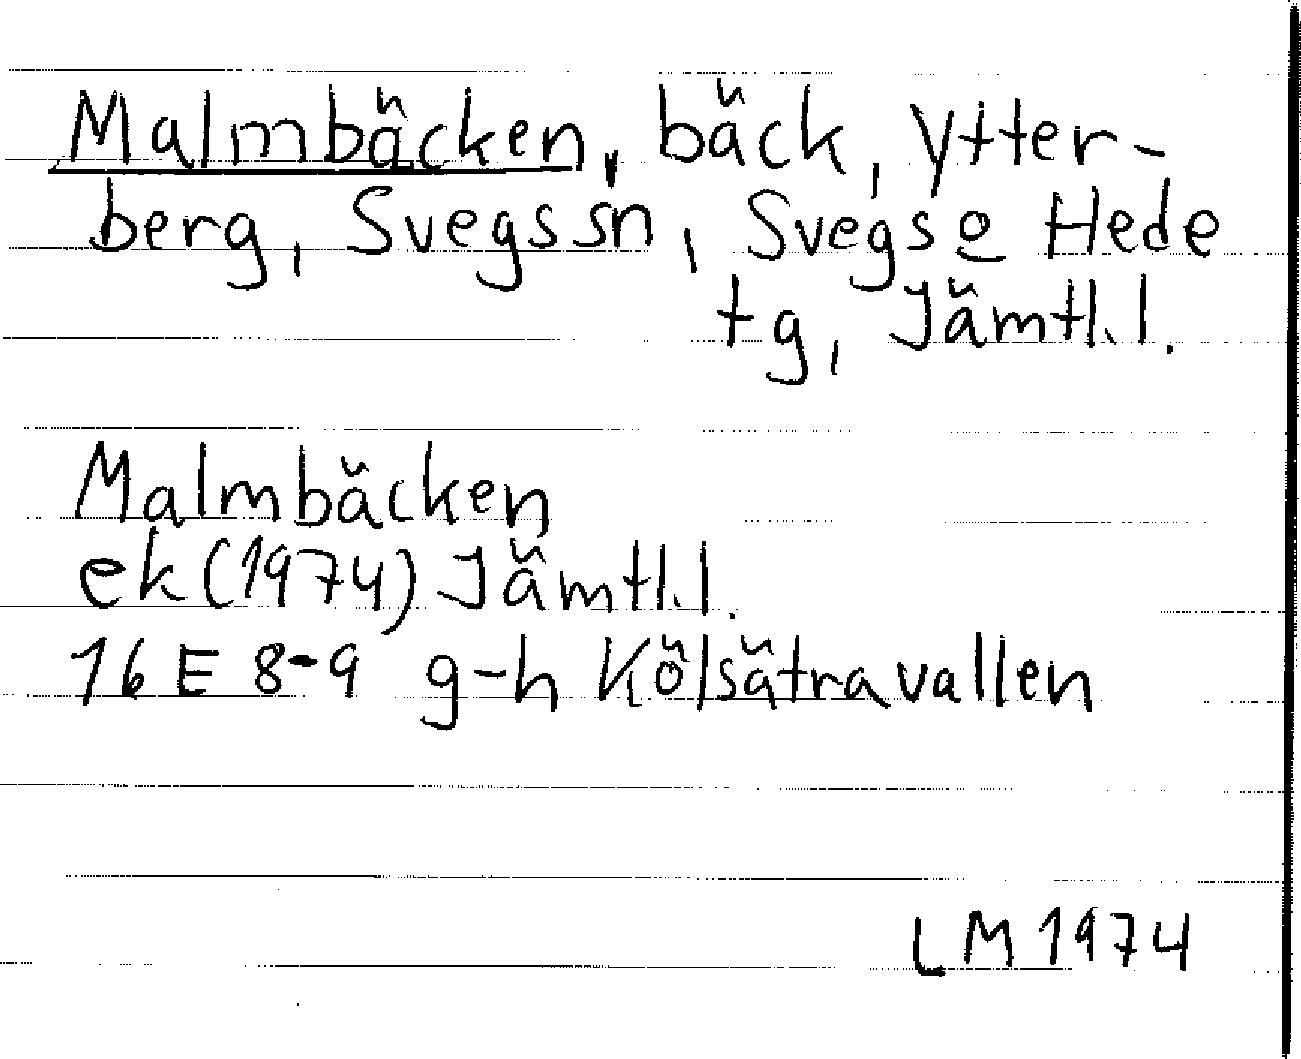 Malmbäcken, bäck, Ytter-
berg, Svegs sn, Svegs o Hede
tg, Jämtl. l.
Malmbäcken
ek (1974) Jämtl. l.
16 E 8-9 g-h Kölsätravallen
LM 1974